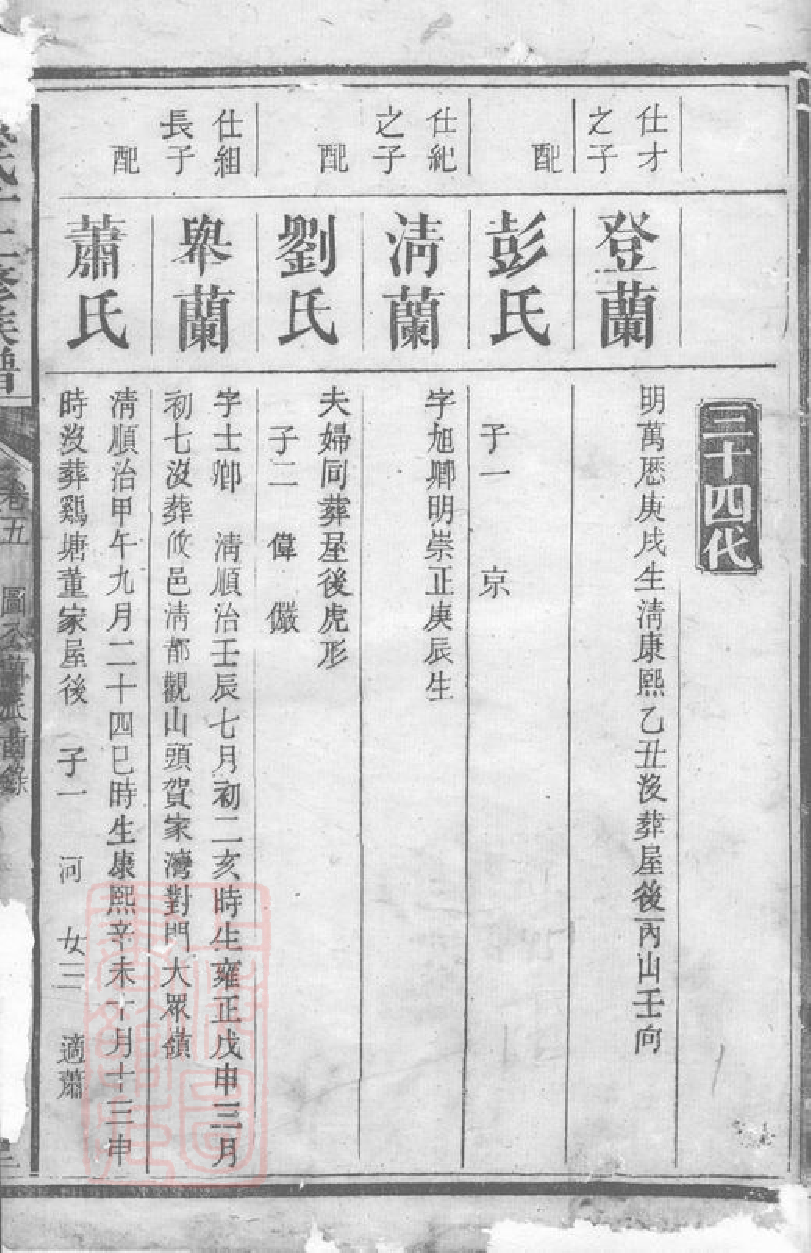 三十四代
仕才
之子
登蘭
明萬厯庚戌生清康熙乙丑沒葬屋後丙山壬向
配
彭氏
子一 京
仕紀
之子
清蘭
字旭卿明崇正庚辰生
配
劉氏
夫婦同葬屋後虎形
子二 偉 儼
仕組
長子
舉蘭
字士卿 清順治壬辰七月初二亥時生雍正戊申三月
初七沒葬攸邑清都觀山頭賀家灣對門大眾嶺
配
蕭氏
清順治甲午九月二十四巳時生康熙辛未十月十三申
時沒葬鷄塘董家屋後 子一 河 女三 適蕭
修族譜
卷五